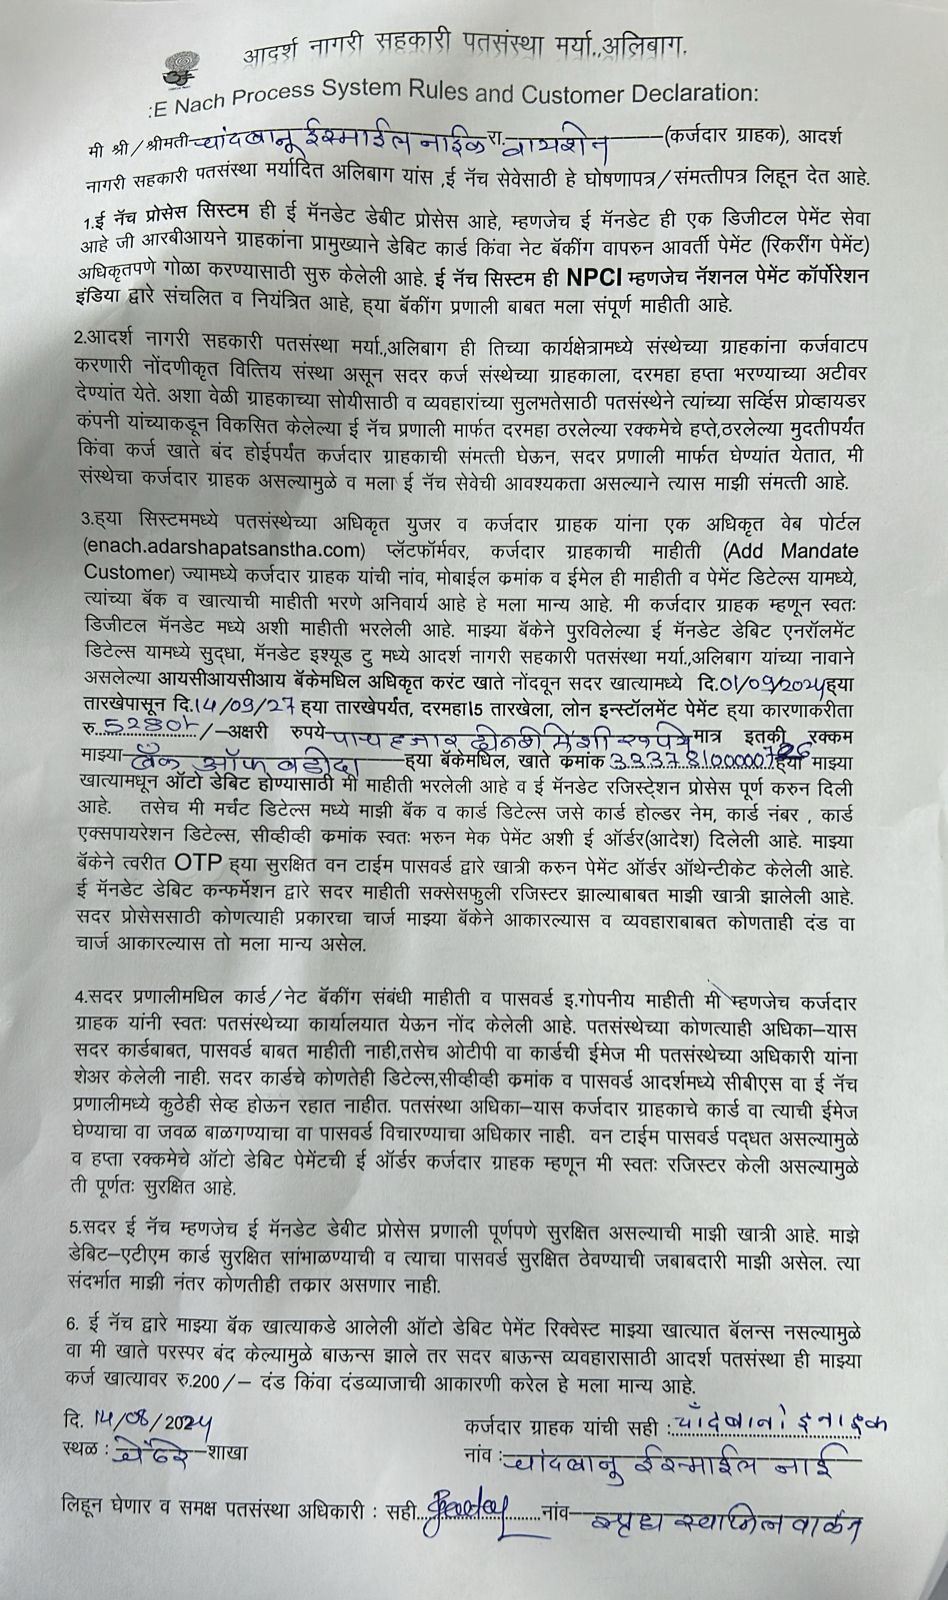 आदर्श नागरी सहकारी पतसंस्था मर्या.,अलिबाग.
:E Nach Process System Rules and Customer Declaration:
मी श्री/श्रीमती चांदबानू ईस्माईल नाईक रा. वायशेत (कर्जदार ग्राहक), आदर्श
नागरी सहकारी पतसंस्था मर्यादित अलिबाग यांस ,ई नॅच सेवेसाठी हे घोषणापत्र/संमत्तीपत्र लिहून देत आहे.
1.ई नॅच प्रोसेस सिस्टम ही ई मॅनडेट डेबीट प्रोसेस आहे, म्हणजेच ई मॅनडेट ही एक डिजीटल पेमेंट सेवा
आहे जी आरबीआयने ग्राहकांना प्रामुख्याने डेबिट कार्ड किंवा नेट बॅकींग वापरुन आवर्ती पेमेंट (रिकरींग पेमेंट)
अधिकृतपणे गोळा करण्यासाठी सुरु केलेली आहे. ई नॅच सिस्टम ही NPCI म्हणजेच नॅशनल पेमेंट कॉर्पोरेशन
इंडिया द्वारे संचलित व नियंत्रित आहे, ह्या बॅकींग प्रणाली बाबत मला संपूर्ण माहीती आहे.
2.आदर्श नागरी सहकारी पतसंस्था मर्या.,अलिबाग ही तिच्या कार्यक्षेत्रामध्ये संस्थेच्या ग्राहकांना कर्जवाटप
करणारी नोंदणीकृत वित्तिय संस्था असून सदर कर्ज संस्थेच्या ग्राहकाला, दरमहा हप्ता भरण्याच्या अटीवर
देण्यांत येते. अशा वेळी ग्राहकाच्या सोयीसाठी व व्यवहारांच्या सुलभतेसाठी पतसंस्थेने त्यांच्या सर्व्हिस प्रोव्हायडर
कंपनी यांच्याकडून विकसित केलेल्या ई नॅच प्रणाली मार्फत दरमहा ठरलेल्या रक्कमेचे हप्ते,ठरलेल्या मुदतीपर्यंत
किंवा कर्ज खाते बंद होईपर्यंत कर्जदार ग्राहकाची संमत्ती घेऊन, सदर प्रणाली मार्फत घेण्यांत येतात, मी
संस्थेचा कर्जदार ग्राहक असल्यामुळे व मला ई नॅच सेवेची आवश्यकता असल्याने त्यास माझी संमत्ती आहे.
3.ह्या सिस्टममध्ये पतसंस्थेच्या अधिकृत युजर व कर्जदार ग्राहक यांना एक अधिकृत वेब पोर्टल
(enach.adarshapatsanstha.com) प्लॅटफॉर्मवर, कर्जदार ग्राहकाची माहीती (Add Mandate
Customer) ज्यामध्ये कर्जदार ग्राहक यांची नांव, मोबाईल क्रमांक व ईमेल ही माहीती व पेमेंट डिटेल्स यामध्ये,
त्यांच्या बॅक व खात्याची माहीती भरणे अनिवार्य आहे हे मला मान्य आहे. मी कर्जदार ग्राहक म्हणून स्वतः
डिजीटल मॅनडेट मध्ये अशी माहीती भरलेली आहे. माझ्या बॅकेने पुरविलेल्या ई मॅनडेट डेबिट एनरॉलमेंट
डिटेल्स यामध्ये सुद्धा, मॅनडेट इश्यूड टु मध्ये आदर्श नागरी सहकारी पतसंस्था मर्या.,अलिबाग यांच्या नावाने
असलेल्या आयसीआयसीआय बॅकेमधिल अधिकृत करंट खाते नोंदवून सदर खात्यामध्ये दि.01/09/2024ह्या
तारखेपासून दि.14/09/27 ह्या तारखेपर्यंत, दरमहा15 तारखेला, लोन इन्स्टॉलमेंट पेमेंट ह्या कारणाकरीता
रु.5280/-अक्षरी रुपये पाच हजार दोनशे ऐंशी रुपये मात्र इतकी रक्कम
माझ्या बँक ऑफ बडोदा ह्या बॅकेमधिल, खाते क्रमांक 33378100000726 ह्या माझ्या
खात्यामधून ऑटो डेबिट होण्यासाठी मी माहीती भरलेली आहे व ई मॅनडेट रजिस्ट्रेशन प्रोसेस पूर्ण करुन दिली
आहे. तसेच मी मर्चंट डिटेल्स मध्ये माझी बॅक व कार्ड डिटेल्स जसे कार्ड होल्डर नेम, कार्ड नंबर , कार्ड
एक्सपायरेशन डिटेल्स, सीव्हीव्ही क्रमांक स्वतः भरुन मेक पेमेंट अशी ई ऑर्डर(आदेश) दिलेली आहे. माझ्या
बॅकेने त्वरीत OTP ह्या सुरक्षित वन टाईम पासवर्ड द्वारे खात्री करुन पेमेंट ऑर्डर ऑथेन्टीकेट केलेली आहे.
ई मॅनडेट डेबिट कन्फर्मेशन द्वारे सदर माहीती सक्सेसफुली रजिस्टर झाल्याबाबत माझी खात्री झालेली आहे.
सदर प्रोसेससाठी कोणत्याही प्रकारचा चार्ज माझ्या बॅकेने आकारल्यास व व्यवहाराबाबत कोणताही दंड वा
चार्ज आकारल्यास तो मला मान्य असेल.
4.सदर प्रणालीमधिल कार्ड/नेट बॅकींग संबंधी माहीती व पासवर्ड इ.गोपनीय माहीती मी म्हणजेच कर्जदार
ग्राहक यांनी स्वतः पतसंस्थेच्या कार्यालयात येऊन नोंद केलेली आहे. पतसंस्थेच्या कोणत्याही अधिका–यास
सदर कार्डबाबत, पासवर्ड बाबत माहीती नाही,तसेच ओटीपी वा कार्डची ईमेज मी पतसंस्थेच्या अधिकारी यांना
शेअर केलेली नाही. सदर कार्डचे कोणतेही डिटेल्स,सीव्हीव्ही क्रमांक व पासवर्ड आदर्शमध्ये सीबीएस वा ई नॅच
प्रणालीमध्ये कुठेही सेव्ह होऊन रहात नाहीत. पतसंस्था अधिका–यास कर्जदार ग्राहकाचे कार्ड वा त्याची ईमेज
घेण्याचा वा जवळ बाळगण्याचा वा पासवर्ड विचारण्याचा अधिकार नाही. वन टाईम पासवर्ड पद्धत असल्यामुळे
व हप्ता रक्कमेचे ऑटो डेबिट पेमेंटची ई ऑर्डर कर्जदार ग्राहक म्हणून मी स्वतः रजिस्टर केली असल्यामुळे
ती पूर्णतः सुरक्षित आहे.
5.सदर ई नॅच म्हणजेच ई मॅनडेट डेबीट प्रोसेस प्रणाली पूर्णपणे सुरक्षित असल्याची माझी खात्री आहे. माझे
डेबिट–एटीएम कार्ड सुरक्षित सांभाळण्याची व त्याचा पासवर्ड सुरक्षित ठेवण्याची जबाबदारी माझी असेल. त्या
संदर्भात माझी नंतर कोणतीही तकार असणार नाही.
6. ई नॅच द्वारे माझ्या बॅक खात्याकडे आलेली ऑटो डेबिट पेमेंट रिक्वेस्ट माझ्या खात्यात बॅलन्स नसल्यामुळे
वा मी खाते परस्पर बंद केल्यामुळे बाऊन्स झाले तर सदर बाऊन्स व्यवहारासाठी आदर्श पतसंस्था ही माझ्या
कर्ज खात्यावर रु.200/– दंड किंवा दंडव्याजाची आकारणी करेल हे मला मान्य आहे.
दि. 14/08/2024 कर्जदार ग्राहक यांची सही : चाँदबानो इ नाइक
स्थळ : चेंढरे शाखा नांव : चांदबानु ईस्माईल नाई
लिहून घेणार व समक्ष पतसंस्था अधिकारी : सही नांव